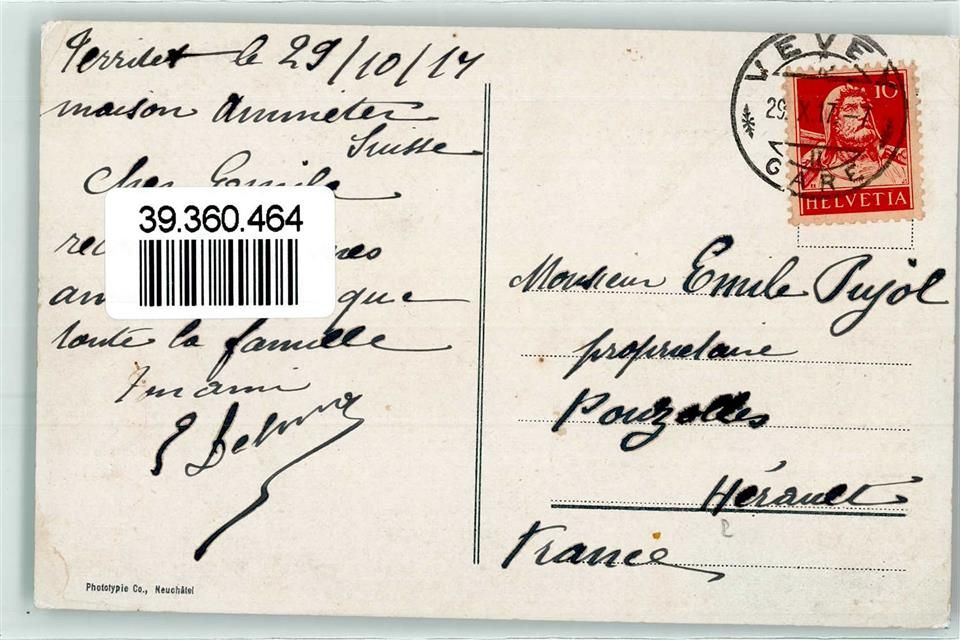 Territet le 29/10/17
maison Ammeter
Suisse
Cher Emile
39.360.464
que
toute la famille
Ton ami
VEVEY
29. X. 17 - 7
GARE
10
HELVETIA
Monsieur Emile Pujol
propriétaire
Pouzolles
Hérault
France
Phototypie Co., Neuchâtel